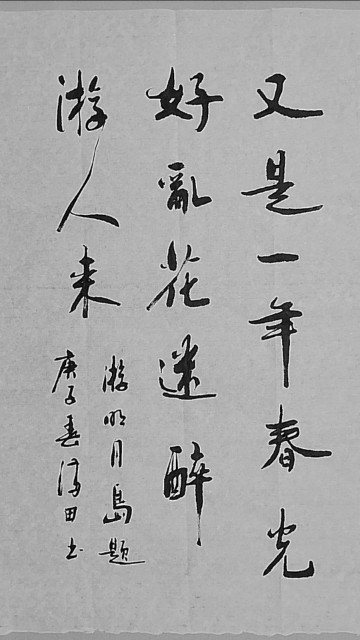 又是一年春光
好亂花迷醉
游人来
游明月島題
庚子春濤田书